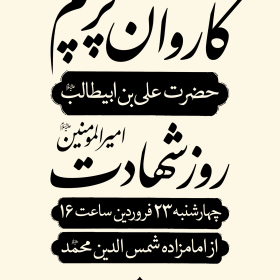 کاروان پرچم
حضرت علی بن ابیطالب
امیرالمومنین
روز شهادت
چهارشنبه ۲۳ فروردین ساعت ۱۶
از امامزاده شمس الدین محمد